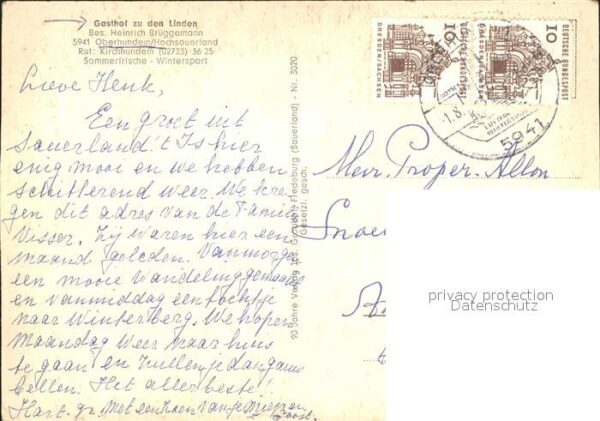 Gasthof zu den Linden
Bes. Heinrich Brüggemann
5941 Oberhundem/Hochsauerland
Ruf: Kirchhundem (02723) 36 25
Sommerfrische - Wintersport
Lieve Henk,
Een groet uit
Sauerland 't Is hier
enig mooi en we hebben
schitterend weer. We kre
gen dit adres van de Famil
Visser. Zij waren hier een
maand geleden. Vanmorgen
een mooie wandeling gemaakt
en vanmiddag een tochtje
naar Winterberg. We hopen
Maandag weer naar huis
te gaan en zullen je dan gauw
bellen. Het allerbeste!
Hart. gr. met een zoen van je
90 Jahre Verlag Jos. Fredeburg (Sauerland) - Nr. 3020
Gesetzl. gesch.
10 10
DEUTSCHE BUNDESPOST
DRESDEN/SACHSEN
DRESDEN/SACHSEN
5941
Mevr. Proper-
privacy protection
Datenschutz